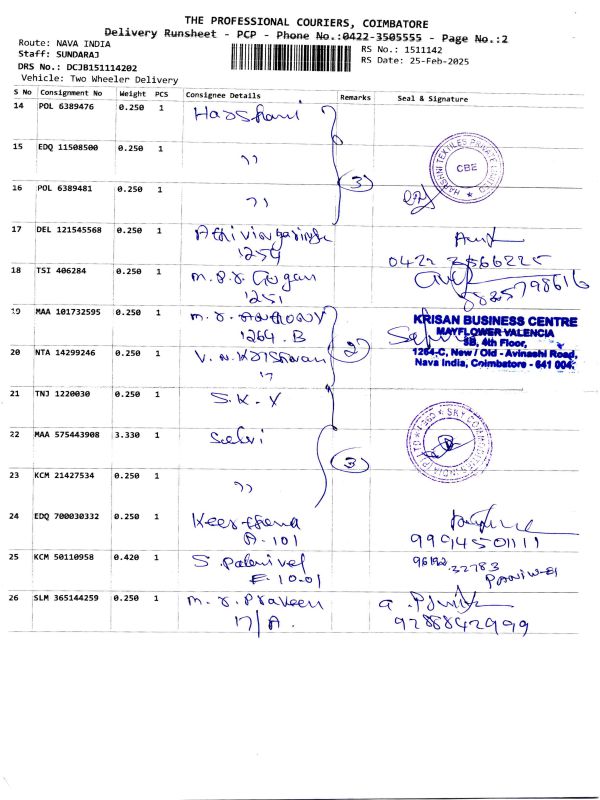 THE PROFESSIONAL COURIERS, COIMBATORE
Delivery Runsheet - PCP - Phone No.:0422-3505555 - Page No.:2
Route: NAVA INDIA
RS No.: 1511142
Staff: SUNDARAJ
RS Date: 25-Feb-2025
DRS No.: DCJB151114202
Vehicle: Two Wheeler Delivery
S No Consignment No Weight PCS Consignee Details Remarks Seal & Signature
14 POL 6389476 0.250 1
15 EDQ 11508500 0.250 1 ,,
3
HARSHNI TEXTILES PRIVATE LIMITED
CBE
16 POL 6389481 0.250 1 ,,
17 DEL 121545568 0.250 1
1254
0422 2566225
18 TSI 406284 0.250 1 M.P.R. Gugan
1251
19 MAA 101732595 0.250 1
1264.B
KRISAN BUSINESS CENTRE
MAYFLOWER VALENCIA
5B, 4th Floor,
1264-C, New / Old - Avinashi Road,
Nava India, Coimbatore - 641 004.
2
20 NTA 14299246 0.250 1
,,
21 TNJ 1220030 0.250 1 S.K.Y
22 MAA 575443908 3.330 1 Selvi
3
23 KCM 21427534 0.250 1 ,,
24 EDQ 700030332 0.250 1 Keerthana
A-101
9994501111
25 KCM 50110958 0.420 1 S. Palanivel
E-10-01
26 SLM 365144259 0.250 1 M.R. Praveen
17/A.